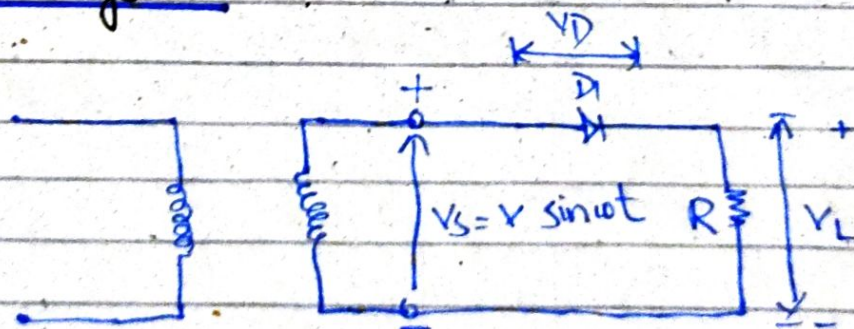 VD
D1
+
+
Vs = V sin ωt
R
VL
-
-